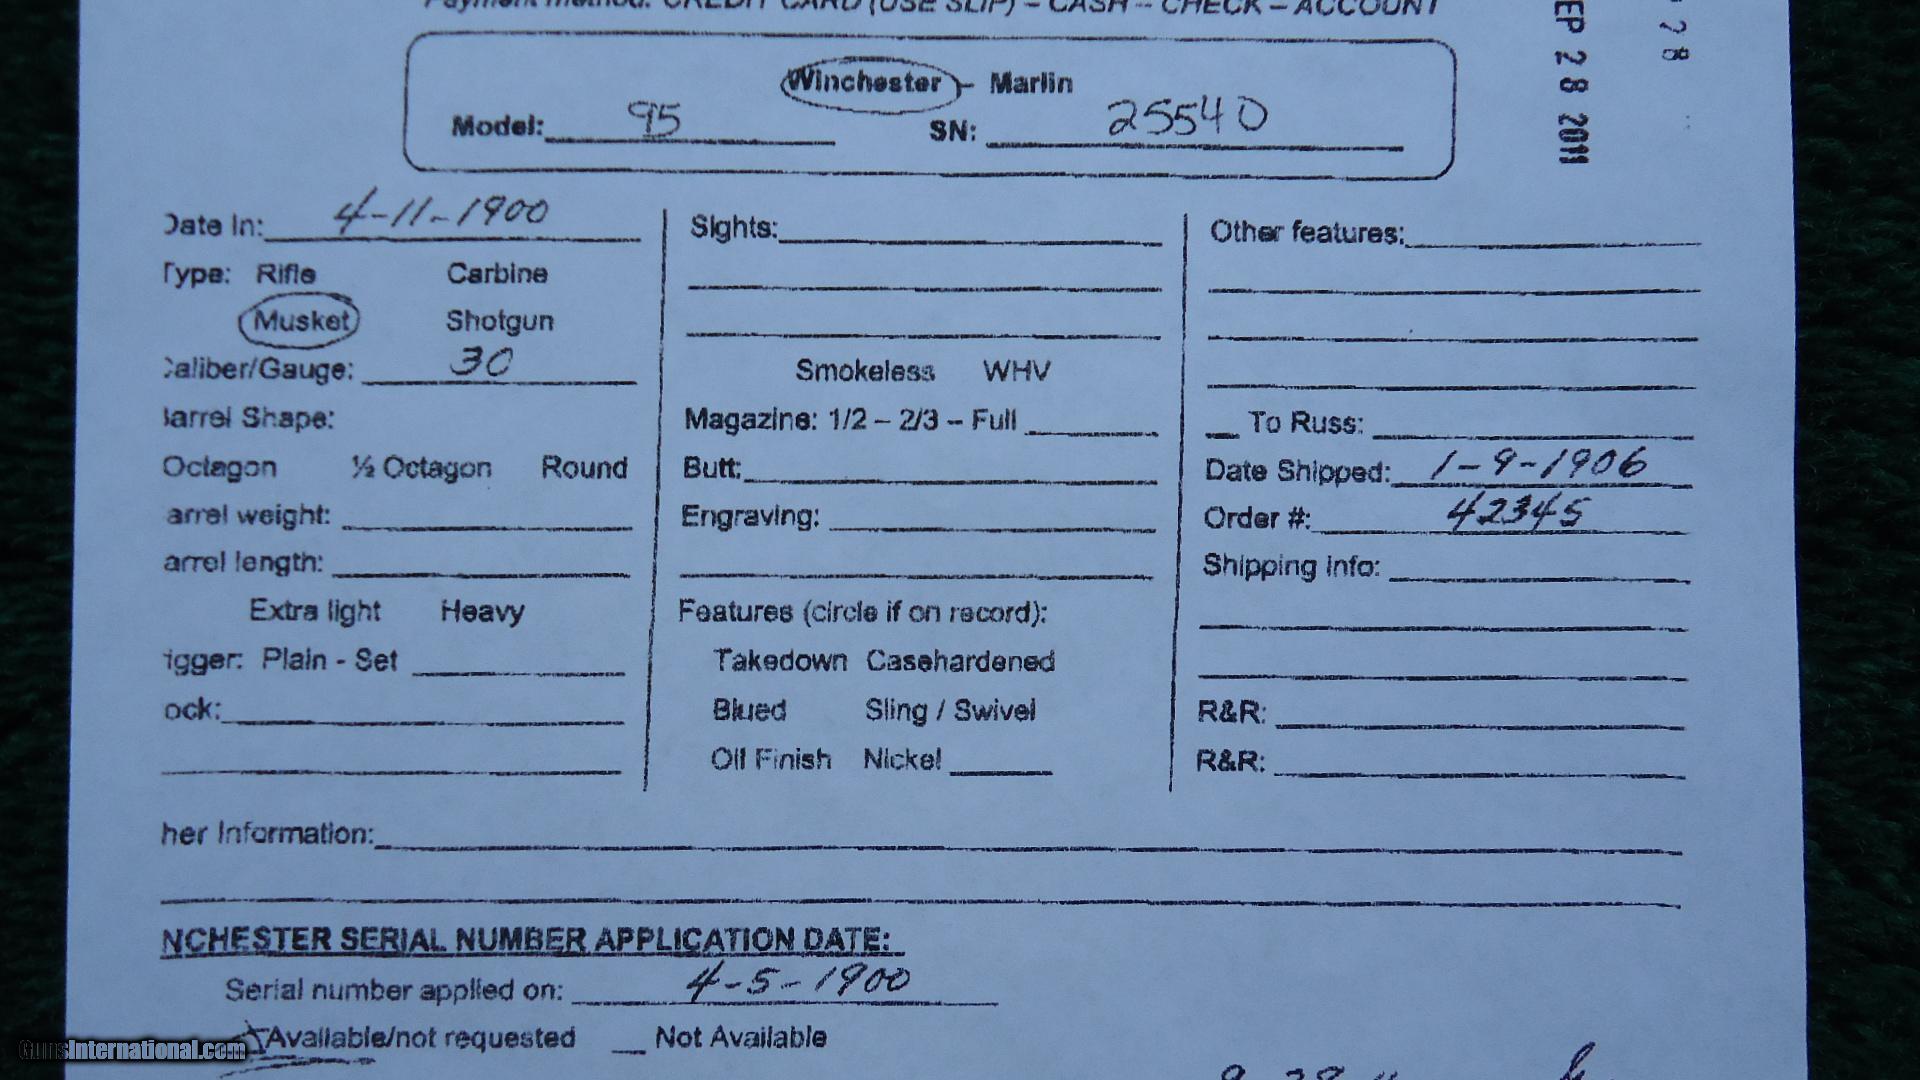 Payment method: CREDIT CARD (USE SLIP) – CASH – CHECK – ACCOUNT
EP 28 2011
78
Winchester – Marlin
Model: 95 SN: 25540
Date In: 4-11-1900
Type: Rifle Carbine
Musket Shotgun
Caliber/Gauge: 30
Barrel Shape:
Octagon ½ Octagon Round
arrel weight:
arrel length:
Extra light Heavy
igger: Plain - Set
ock:
Sights:
Smokeless WHV
Magazine: 1/2 – 2/3 – Full
Butt:
Engraving:
Features (circle if on record):
Takedown Casehardened
Blued Sling / Swivel
Oil Finish Nickel
Other features:
To Russ:
Date Shipped: 1-9-1906
Order #: 42345
Shipping info:
R&R:
R&R:
her Information:
NCHESTER SERIAL NUMBER APPLICATION DATE:
Serial number applied on: 4-5-1900
Available/not requested Not Available
GunsInternational.com